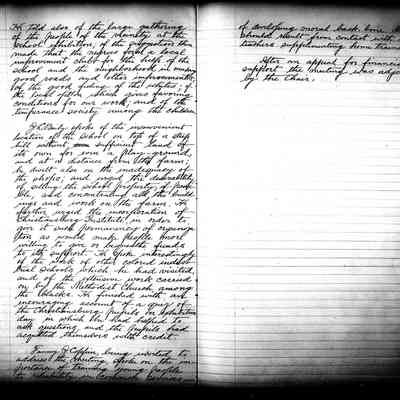 He told also of the large gathering
of the people of the vicinity at the
school exhibition, of the suggestion then
made that the negroes form a local
improvement club for the help of the
school and the neighborhood in making
good roads and other improvements,
of the good feeling of the whites, of
the work after, which gives favoring
conditions for our work, and of the
temperance society among the children.
spoke of the inconvenient
location of the school on top of a steep
hill without sufficient land of
its own for even a play-ground,
and at a distance from the farm;
he dwelt also on the inadequacy of
the shops; and urged the desirability
of selling the school property if possi-
ble, and concentrating all the build-
ings and work on the farm. He
further urged the incorporation of
Christiansburg Institute in order to
give it such permanency of organiza-
tion as would make people more
willing to give or bequeathe funds
to its support. He spoke interestingly
of the work of other colored indus-
trial schools which he had visited,
and of the extensive work carried
on by the Methodist Church among
the blacks. He finished with an
encouraging account of a quiz of
the Christiansburg pupils on exhibition
day in which he had helped to
ask questions and the pupils had
acquitted themselves with credit.
Fanny J. Coppin, being invited to
address the meeting spoke on the im-
portance of training young people
of developing moral back bone
should result from contact with
teachers supplementing home train
After an appeal for financial
support the meeting was adjourned
by the Chair.